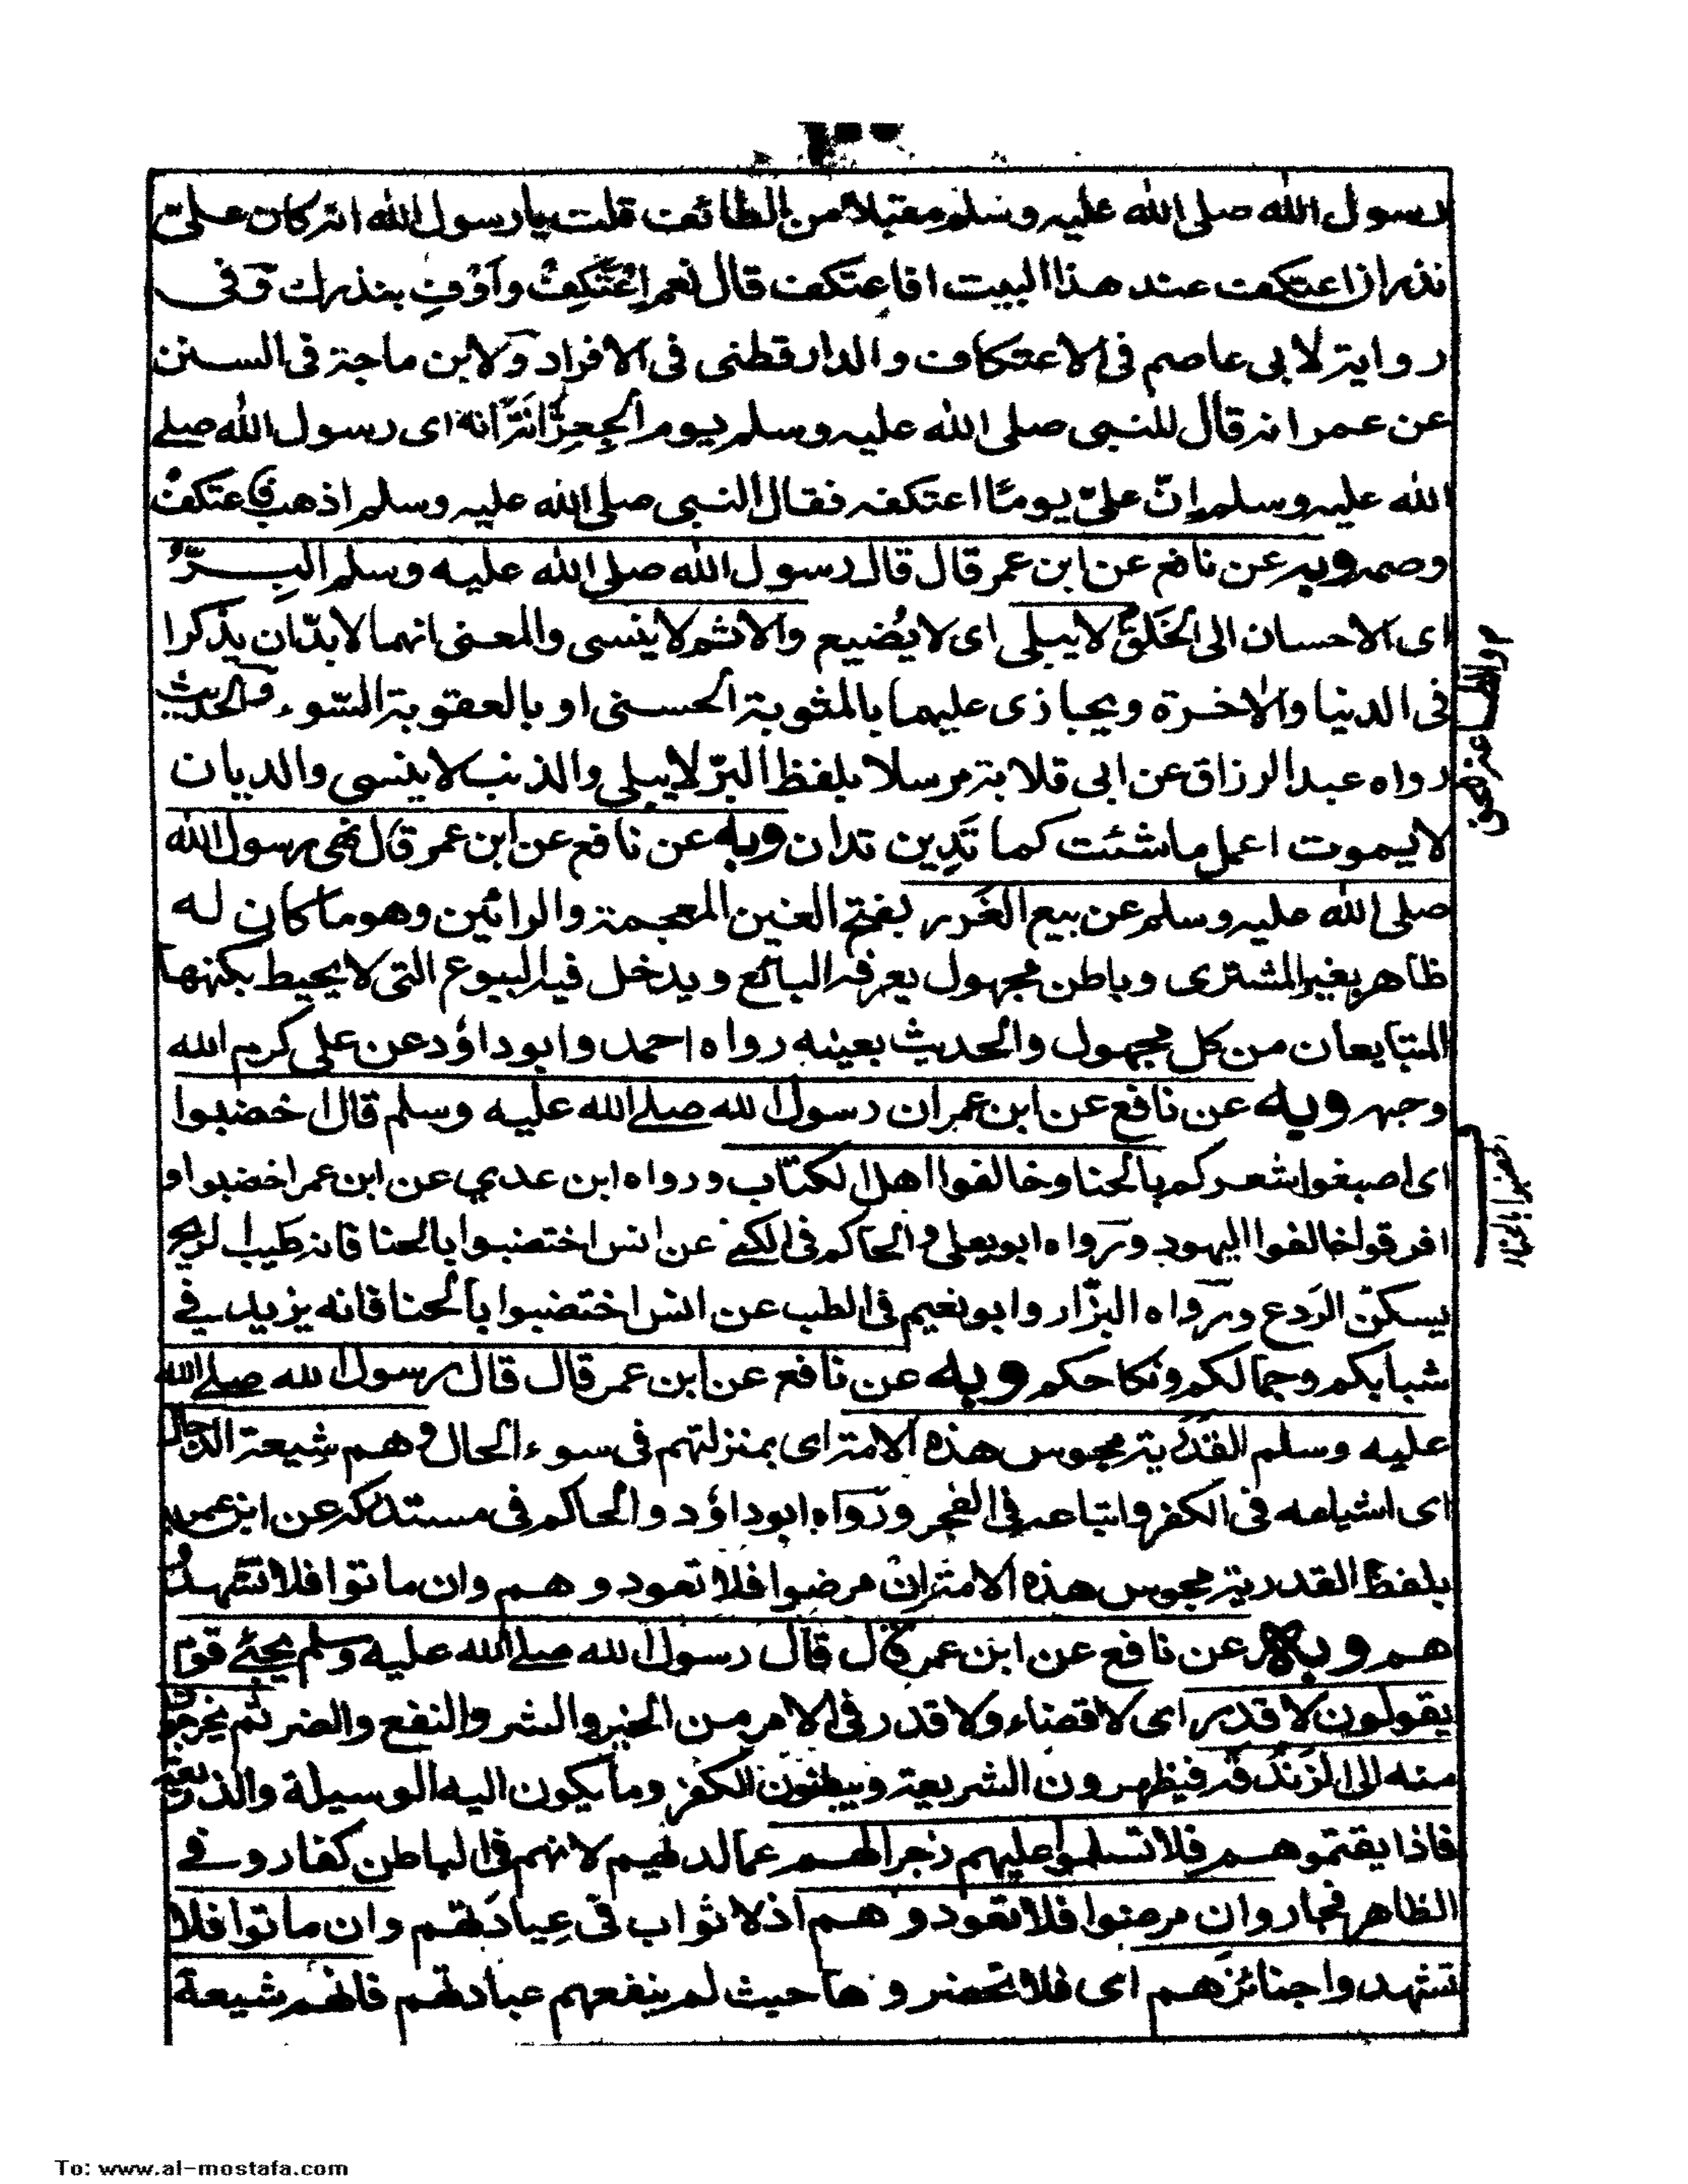 رسول الله صلى الله عليه وسلم مقبلا من الطائف قلت يا رسول الله انه كان علىّ
نذر ان اعتكف عند هذا البيت افاعتكف قال نعم اِعْتَكِفْ وَاَوْفِ بنذرك وفى
رواية لابى عاصم فى الاعتكاف والدارقطنى فى الافراد ولابن ماجة فى السنن
عن عمر انه قال للنبى صلى الله عليه وسلم يوم الجِعِرَّانَة اى رسول الله صلے
الله عليه وسلم اِنّ علىّ يومًا اعتكفه فقال النبى صلى الله عليه وسلم اذهب فاعتكفْ
وصمه وبه عن نافع عن ابن عمر قال قال رسول الله صلى الله عليه وسلم البِرُّ
اى الاحسان الى الخَلقْ لا يبلى اى لا يُضيع والاثم لا ينسى والمعنى انهما لا بدّ ان يذكرا
فى الدنيا والاخرة ويجازى عليهما بالمثوبة الحسنى او بالعقوبة السّوء والحديث
رواه عبد الرزاق عن ابى قلابة مرسلا بلفظ البرّ لا يبلى والذنب لا ينسى والديان
لا يموت اعمل ما شئت كما تَدِين تدان وبه عن نافع عن ابن عمر قال نهى رسول الله
صلى الله عليه وسلم عن بيع الغَرر بفتح الغين المعجمة والرائين وهو ما كان له
ظاهر يغير المشترى وباطن مجهول يعرفه البائع ويدخل فيه البيوع التى لا يحيط بكنهها
المتبايعان من كل مجهول والحديث بعينه رواه احمد وابو داؤد عن على كرم الله
وجهه وبه عن نافع عن ابن عمر ان رسول الله صلے الله عليه وسلم قال اخضبوا
اى اصبغوا شعركم بالحنا وخالفوا اهل الكتاب ورواه ابن عدي عن ابن عمر اخضبوا و
افرقوا خالفوا اليهود ورواه ابو يعلى والحاكم فى الكنى عن انس اختضبوا بالحنا فانه طيب الريح
يسكن الرَدع ورواه البزّار وابو نعيم فى الطب عن انس اختضبوا بالحنا فانه يزيد في
شبابكم وجمالكم ونكاحكم وبه عن نافع عن ابن عمر قال قال رسول الله صلے الله
عليه وسلم القَدَرية مجوس هذه الامة اى بمنزلتهم فى سوء الحال وهم شيعة الدجال
اى اشياعه فى الكفر واتباعه فى الفجر ورواه ابو داؤد والحاكم فى مستدركه عن ابن عمر
بلفظ القدرية مجوس هذه الامة ان مرضوا فلا تعودوهم وان ماتوا فلا تشهدُ
هم وبه عن نافع عن ابن عمر قال قال رسول الله صلے الله عليه وسلم يجئے قوم
يقولون لا قدر اى لا قضاء ولا قدر فى الامر من الخير والشر والنفع والضر ثم يخرجون
منه الى الزَندَقة فيظهرون الشريعة ويبطنون الكفر وما يكون اليه الوسيلة والذريعة
فاذا لقيتموهم فلا تسلموا عليهم زجرا لهم عما لديهم لانهم فى الباطن كفار وفے
الظاهر فجار وان مرضوا فلا تعودوهم اذ لا ثواب فى عِيادَتهم وان ماتوا فلا
تشهدوا جنائزهم اى فلا تحضروها حيث لم ينفعهم عبادتهم فانهم شيعة
اخضبوا بالحناء
To: www.al-mostafa.com